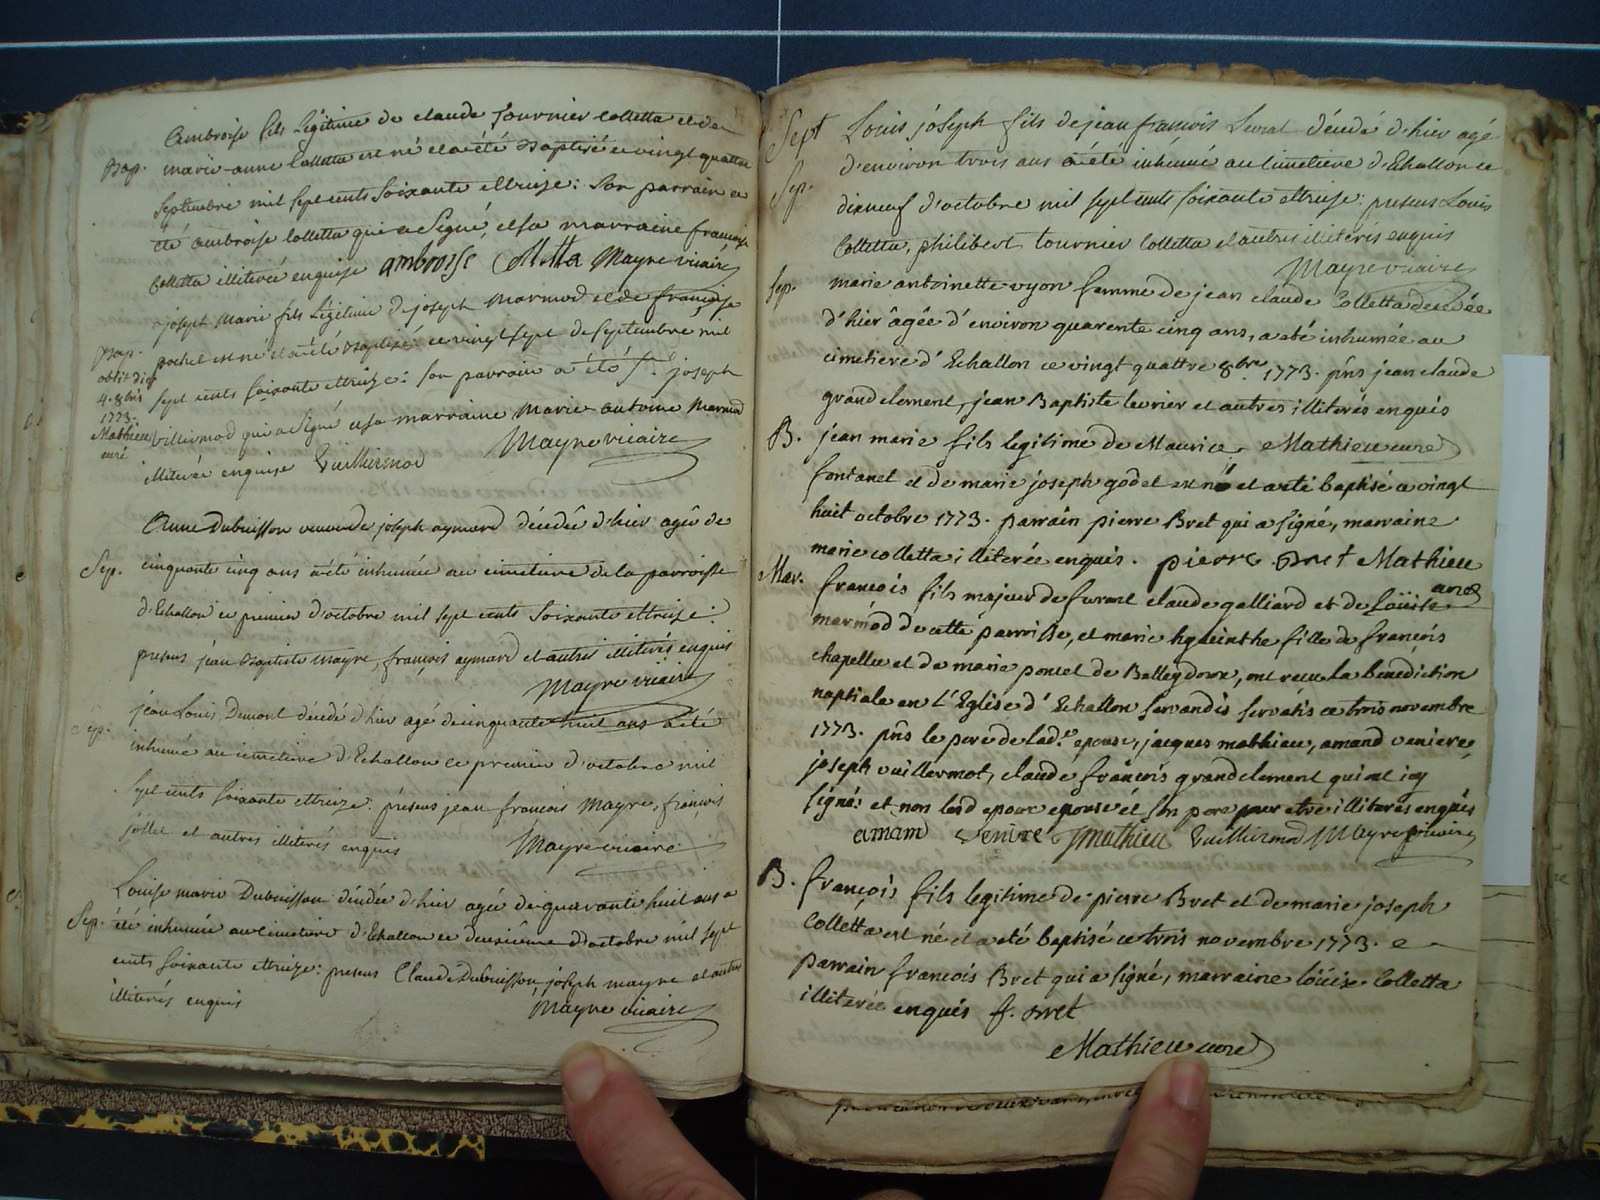 Ambroise fils légitime de claude tournier Colletta et de
Bap. marie-anne Colletta est né et a été Baptisé ce vingt quattre
Septembre mil sept cents soixante et treize: Son parrain a
été ambroise Colletta qui a Signé, et sa marraine françoise
Colletta illiterée enquise ambroise Colletta Mayre vicaire
joseph Marie fils Légitime de joseph Marmod et de françoise
Bap. poncet est né et a été Baptisé ce vingt sept de septembre mil
obiit die
4. 8bris
1773.
Mathieu
curé
sept cents soixante et treize: son parrain a été joseph
Villermod qui a Signé et sa marraine Marie-antoine Marmod
illiterée enquise Vuillermod Mayre vicaire
Anne Dubuisson veuve de joseph aymard décédée d'hier agée de
Sep. cinquante cinq ans a été inhumée au cimetiere de la parroisse
d'Echallon ce premier d'octobre mil sept cents soixante et treize:
presens jean Baptiste mayre, françois aymard et autres illiterés enquis
Mayre vicaire
jean Louis Dumont décédé d'hier agé de cinquante huit ans a été
Sep. inhumé au cimetiere d'Echallon ce premier d'octobre mil
sept cents soixante et treize: présens jean françois Mayre, françois
jollet et autres illiterés enquis Mayre vicaire
Louise marie Dubuisson décédée d'hier agée de quarante huit ans a
Sep. été inhumée au cimetiere d'Echallon ce deuxième d'octobre mil sept
cents soixante et treize: presens Claude Dubuisson, joseph mayre et autres
illiterés enquis Mayre vicaire
Sept Louis joseph fils de jean françois décédé d'hier agé
Sep. d'environ trois ans a été inhumé au Cimetiere d'Echallon ce
dixneuf d'octobre mil sept cents soixante et treize: presens Louis
Colletta, philibert tournier Colletta et autres illiterés enquis
Mayre vicaire
Sep. marie antoinette vyon femme de jean claude Colletta decedée
d'hier âgée d'environ quarente cinq ans, a eté inhumée au
cimetiere d'Echallon ce vingt quattre 8bre 1773. pns jean claude
grandclement, jean Baptiste levrier et autres illiterés enquis
B. jean marie fils legitime de Maurice Mathieu curé
fontanet et de marie joseph godet est né et a eté baptisé ce vingt
huit octobre 1773. parrain pierre Bret qui a signé, marraine
marie colletta illiterée enquis. pierre Bret Mathieu
curé
Mar. françois fils majeur de furent claude galliard et de Loüise
marmod de cette parroisse, et marie hyacinthe fille de françois
chapellu et de marie poncet de Belleydoux, ont recu la benediction
nuptiale en L'Eglise d'Echallon servandis servatis ce trois novembre
1773. pns le pere de lad.te epouse, jacques mathieu, amand veniere,
joseph vuillermot, claude françois grandclement qui ont icy
signés et non lesd epoux epouse et son pere pour etre illiterés enquis
amam veniere J mathieu Vuillermod Mayre vicaire
B. françois fils legitime de pierre Bret et de marie joseph
Colletta est né et a eté baptisé ce trois novembre 1773.
parrain françois Bret qui a signé, marraine loüise Colletta
illiterée enquis f. Bret
Mathieu curé